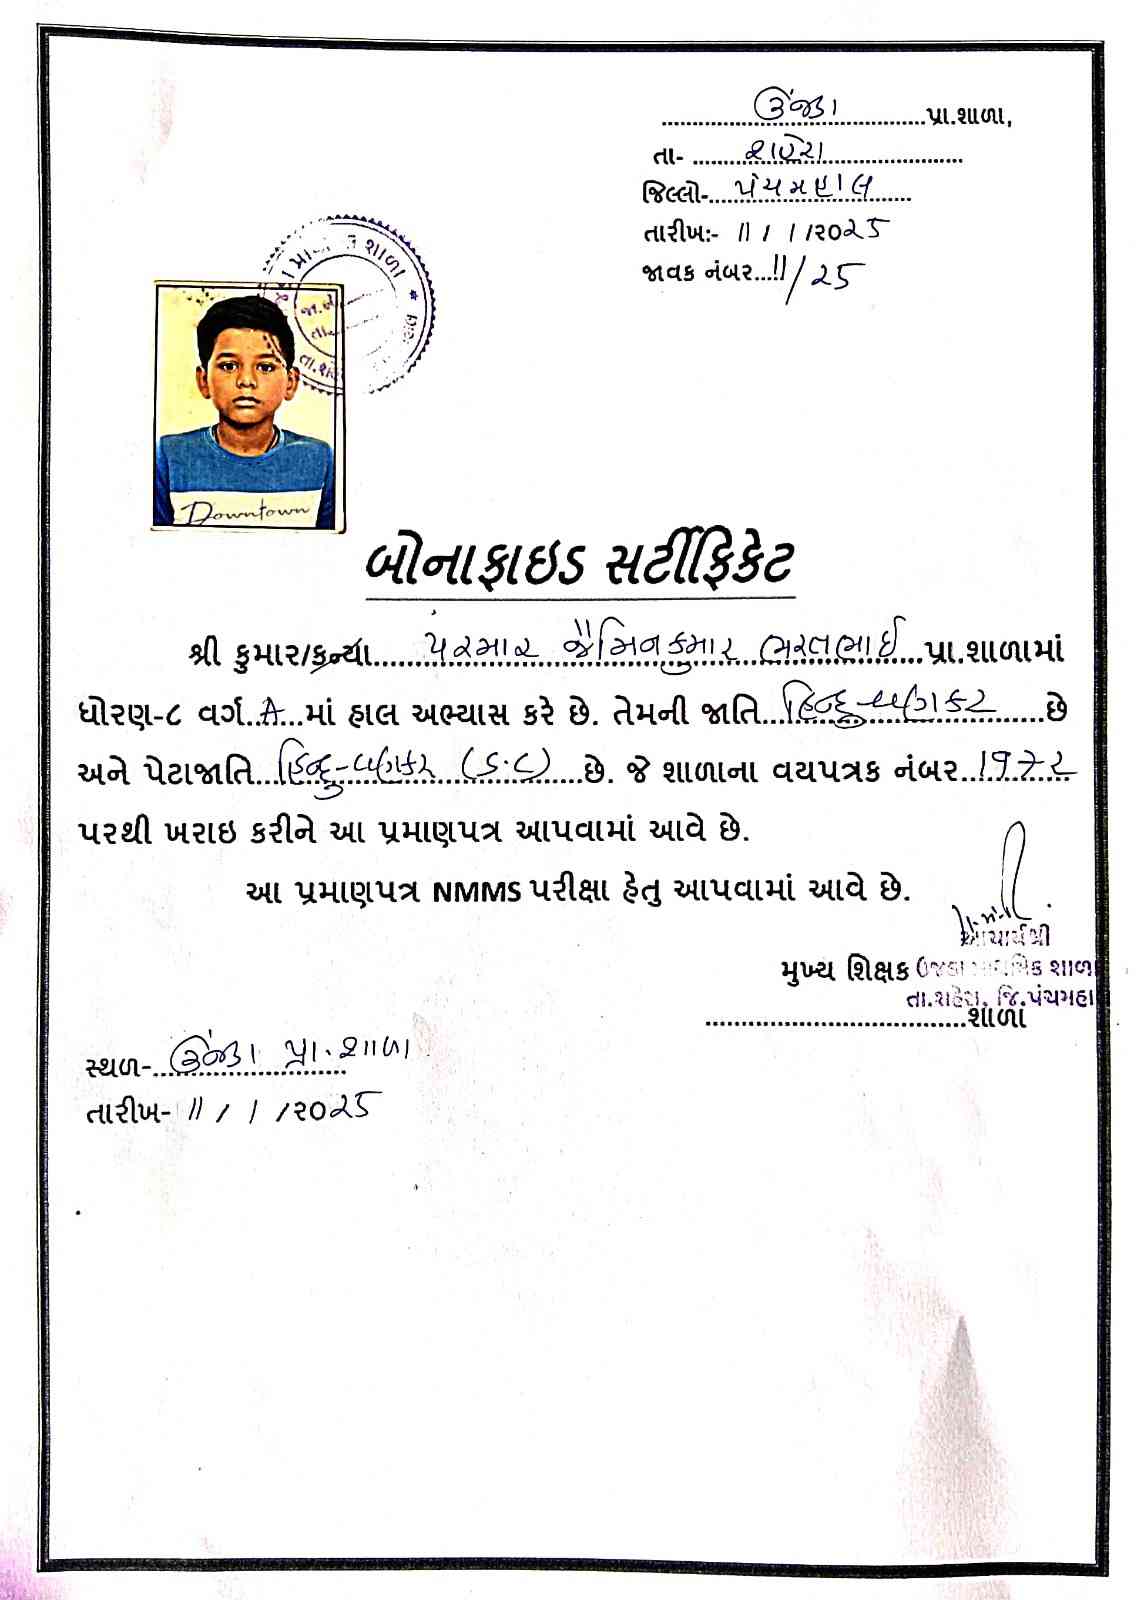 ઊંજડા પ્રા.શાળા,
તા- શહેરા
જિલ્લો- પંચમહાલ
તારીખ:- 11 / 1 /૨૦25
જાવક નંબર...11/25
શાળા
તા.
Downtown
બોનાફાઇડ સર્ટીફિકેટ
શ્રી કુમાર/કન્યા પરમાર જૈમિનકુમાર ભરતભાઈ પ્રા.શાળામાં
ધોરણ-૮ વર્ગ A માં હાલ અભ્યાસ કરે છે. તેમની જાતિ હિન્દુ-વણકર છે
અને પેટાજાતિ હિન્દુ-વણકર (S.C) છે. જે શાળાના વયપત્રક નંબર 1972
પરથી ખરાઇ કરીને આ પ્રમાણપત્ર આપવામાં આવે છે.
આ પ્રમાણપત્ર NMMS પરીક્ષા હેતુ આપવામાં આવે છે.
આચાર્યશ્રી
મુખ્ય શિક્ષક ઉંજડા શાળા
તા.શહેરા, જિ.પંચમહા
શાળા
સ્થળ- ઊંજડા પ્રા. શાળા
તારીખ- 11 / 1 /૨૦25